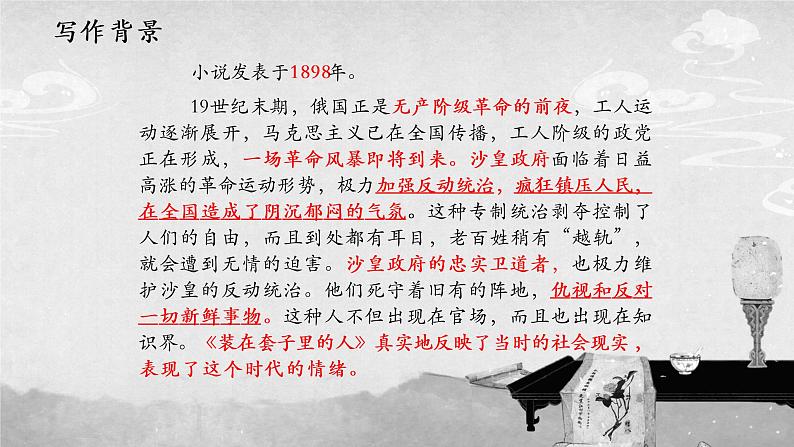 写作背景
小说发表于1898年。
19世纪末期，俄国正是无产阶级革命的前夜，工人运
动逐渐展开，马克思主义已在全国传播，工人阶级的政党
正在形成，一场革命风暴即将到来。沙皇政府面临着日益
高涨的革命运动形势，极力加强反动统治，疯狂镇压人民，
在全国造成了阴沉郁闷的气氛。这种专制统治剥夺控制了
人们的自由，而且到处都有耳目，老百姓稍有“越轨”，
就会遭到无情的迫害。沙皇政府的忠实卫道者，也极力维
护沙皇的反动统治。他们死守着旧有的阵地，仇视和反对
一切新鲜事物。这种人不但出现在官场，而且也出现在知
识界。《装在套子里的人》真实地反映了当时的社会现实，
表现了这个时代的情绪。